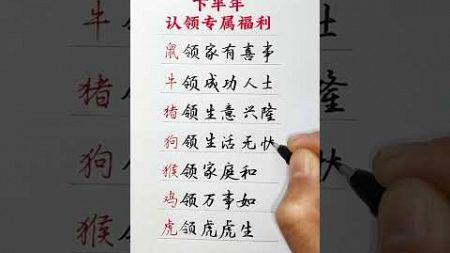 下半年
认领专属福利
鼠领家有喜事
牛领成功人士
猪领生意兴隆
狗领生活无忧
猴领家庭和
鸡领万事如
虎领虎虎生